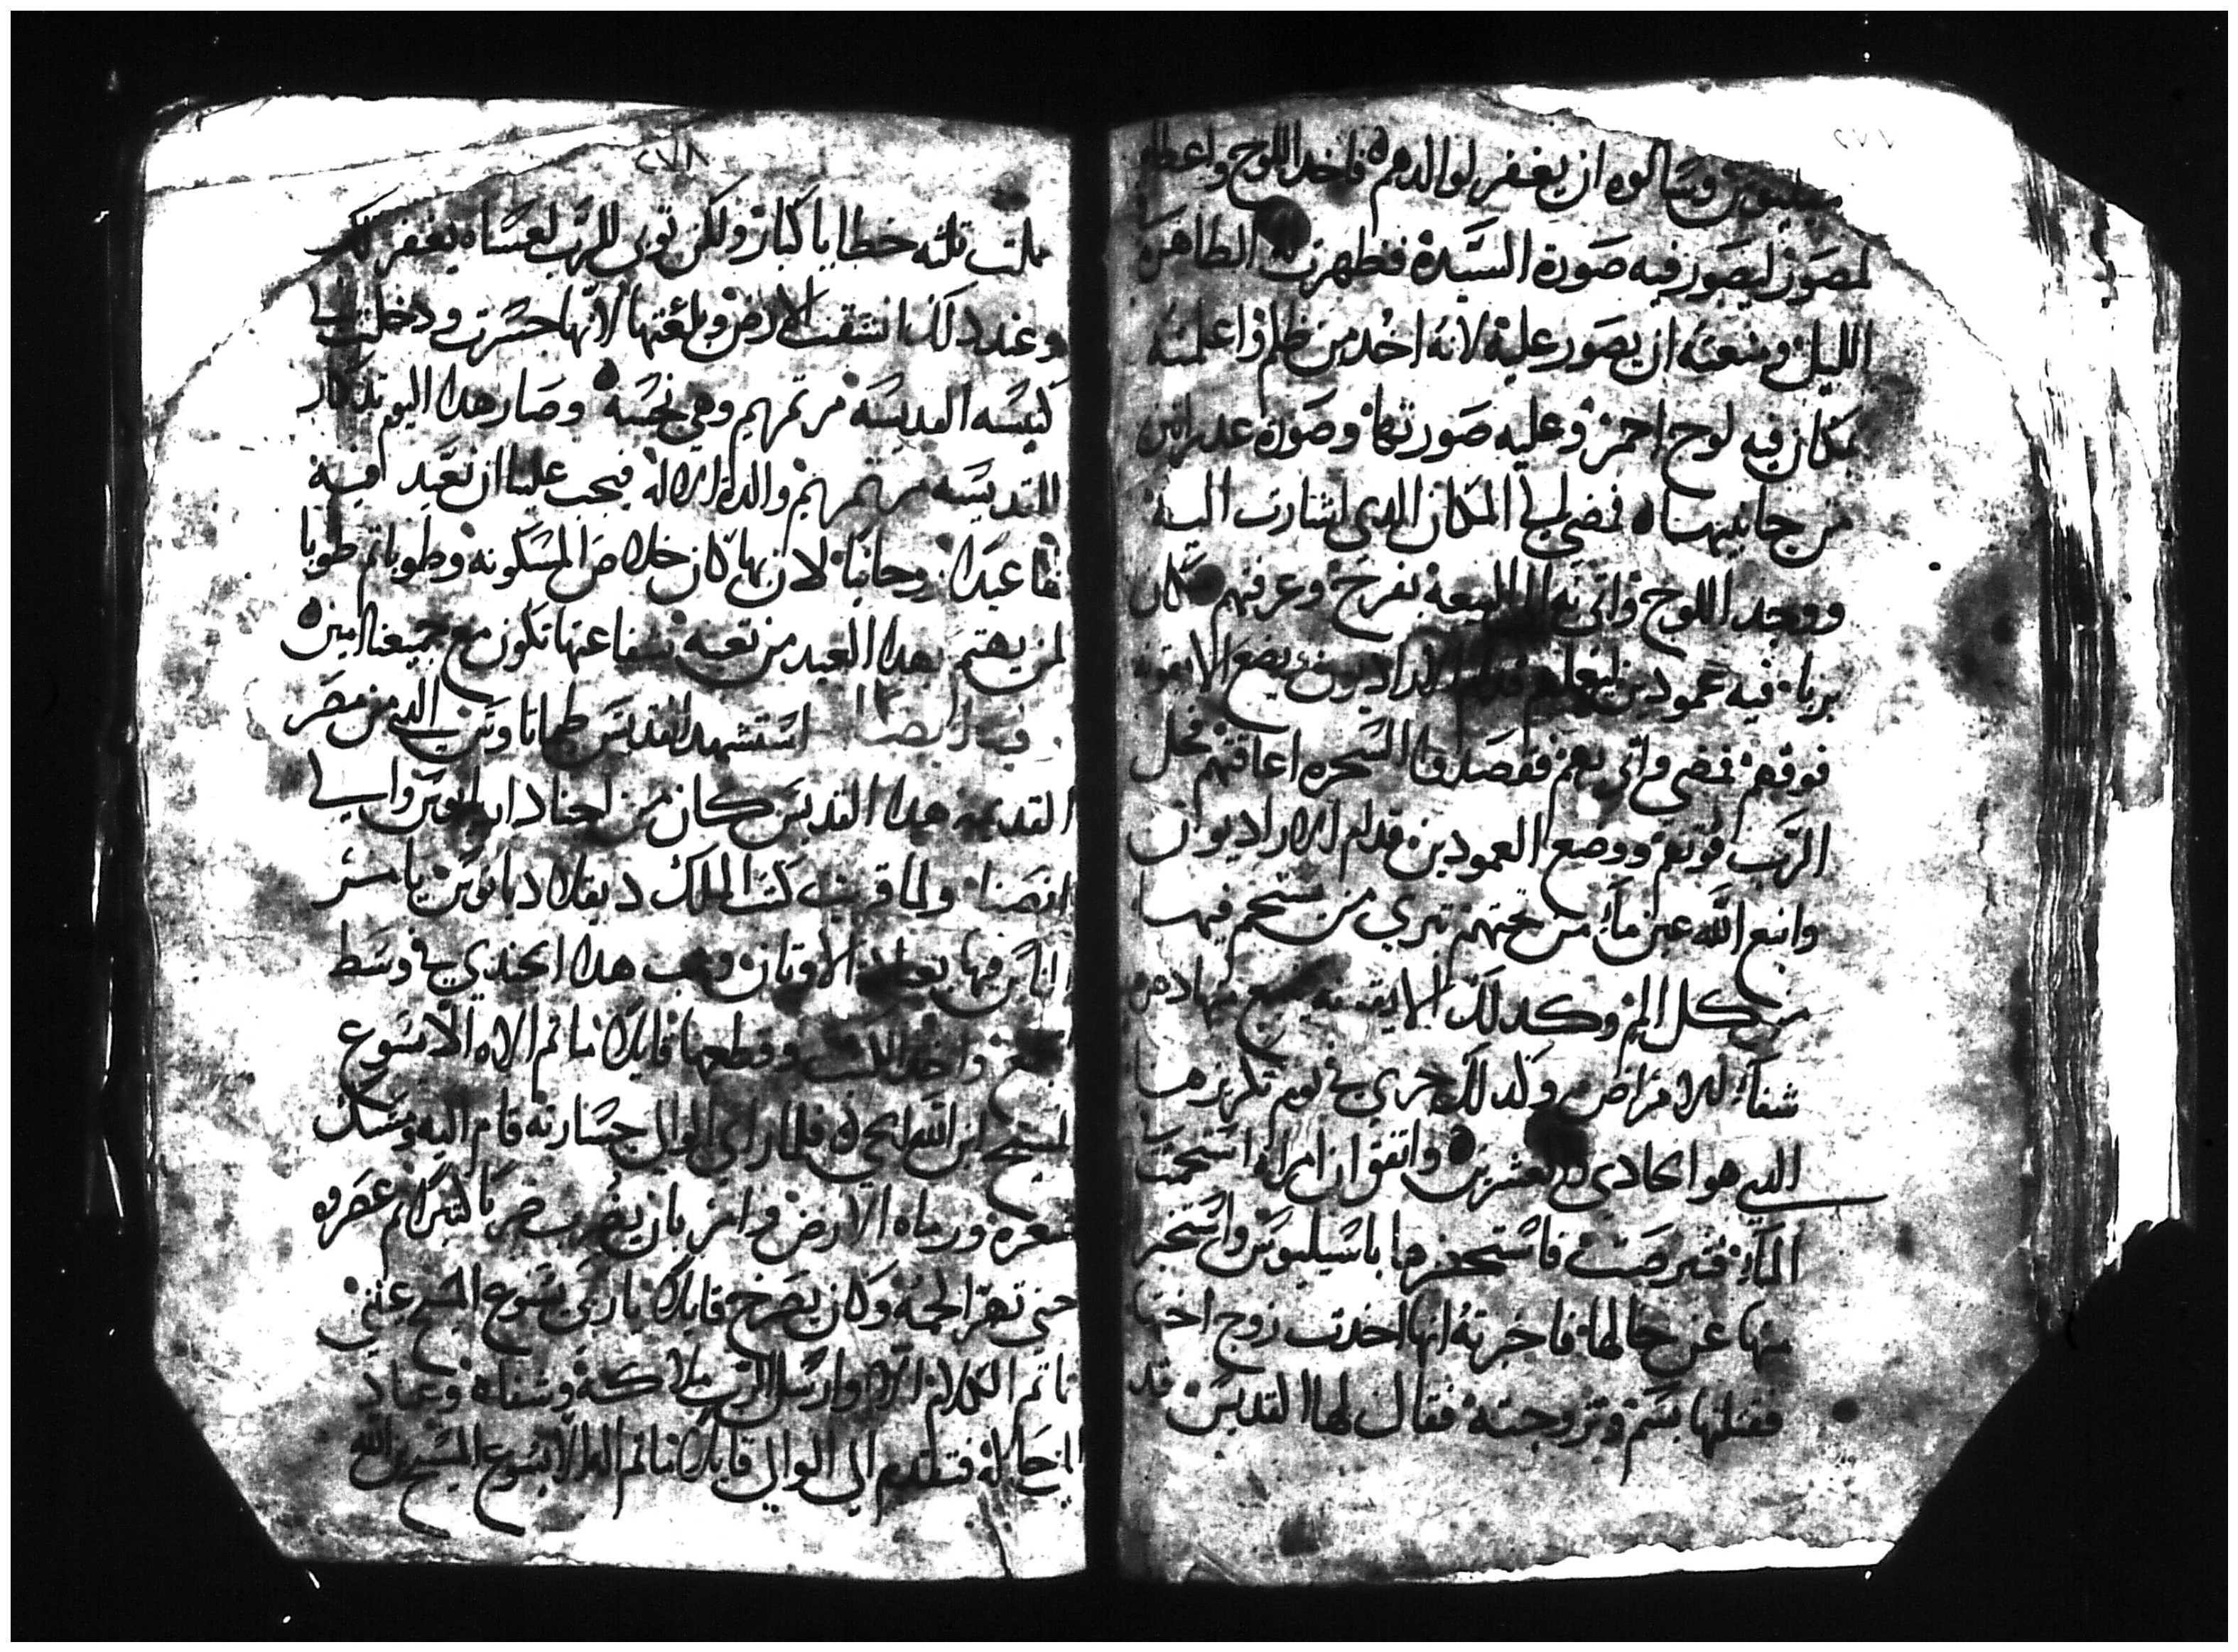 ٢٧٧
باسيليوس وسالوه ان يغفر لوالدهم فاخد اللوح واعطاه
لمصور ليصور فيه صورة السيدة فظهرت الطاهره
الليل ومنعته ان يصور عليه لانه اخد من ظلم واعلمته
بمكان فيه لوح احمر وعليه صورتها وصورة عدراتين
من جانبيها فمضي الي المكان الدي اشارت اليه
ووجد اللوح واتي به الي البيعه بفرح وعرفتهم مكان
بربا فيه عمودين ليقلعهم قدام الاراديون يضع الايقونه
فوقهم فمضي واتي بهم فقصدوا السحره اعاقتهم فحل
الرب قوتهم ووضع العمودين قدام الاراديوان
وانبع الله عين ماء من تحتهم تبري من يستحم فيها
من كل الم وكدلك الايقونه ينبع منها دهن
شفاء للامراض وكدلك جري في يوم تكريزها
الدي هو الحادي والعشرين واتفق ان امراة استحمت
الماء فتبرصت فاستحضرها باسيليوس واستخبر
منها عن حالها فاخبرته انها اخدت زوج اختها
فقتلتها بسم وتزوجته فقال لها القديس قد
٢٧٨
عملت تلته خطايا كبار ولكن توبي للرب لعساه يغفر لك
وعند دلك انشقت الارض وبلعتها لانها جسرت ودخلت الي
كنيسه القديسه مرتمريم وهي نجسه وصار هدا اليوم تدكار
القديسه مرتمريم والدة الاله فيجب علينا ان نعيد فيه
لها عيدا روحانيا لان بها كان خلاص المسكونه وطوبا تم طوبا
لمن يهتم بهدا العيد من تعبه شفاعتها تكون مع جميعنا امين
فيه ايضا استشهد القديس طماتاوس الدي من مصر
القديمه هدا القديس كان من اجناد اريانوس والي
انصنا ولما قريت كتب الملك ديقلاديانوس يامر
الناس فيها بعبادة الاوتان وتب هدا الجندي في وسط
الجمع واخد الكتب وقطعها قايلا ما تم الاه الا يسوع
المسيح ابن الله الحي فلما راي الوالي جسارته قام اليه ومسك
شعره ورماه الارض وامر بان يضرب ضربا كتيرا تم عصروه
حتي تهرا لحمه وكان يصرخ قايلا ياربي يسوع المسيح عيني
ما تم الكلام الا وارسل الرب ملاكه وشفاه وعاد
الي حاله فتقدم الي الوالي قايلا ما تم اله الا يسوع المسيح ابن الله